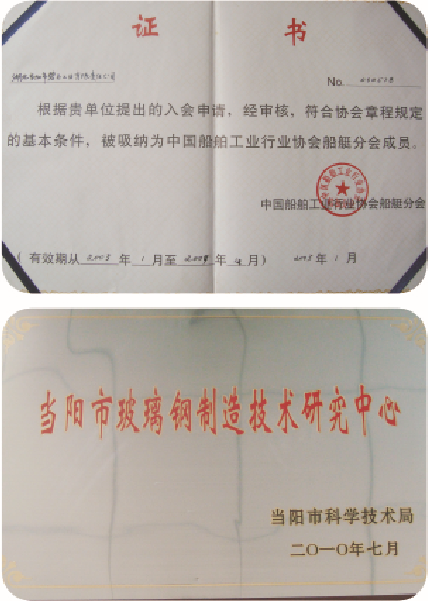 证 书
No
根据贵单位提出的入会申请，经审核，符合协会章程规定
的基本条件，被吸纳为中国船舶工业行业协会船艇分会成员。
中国船舶工业行业协会船艇分会
（有效期从2005年1月至2009年 月） 2005年1月
当阳市玻璃钢制造技术研究中心
当阳市科学技术局
二〇一〇年七月